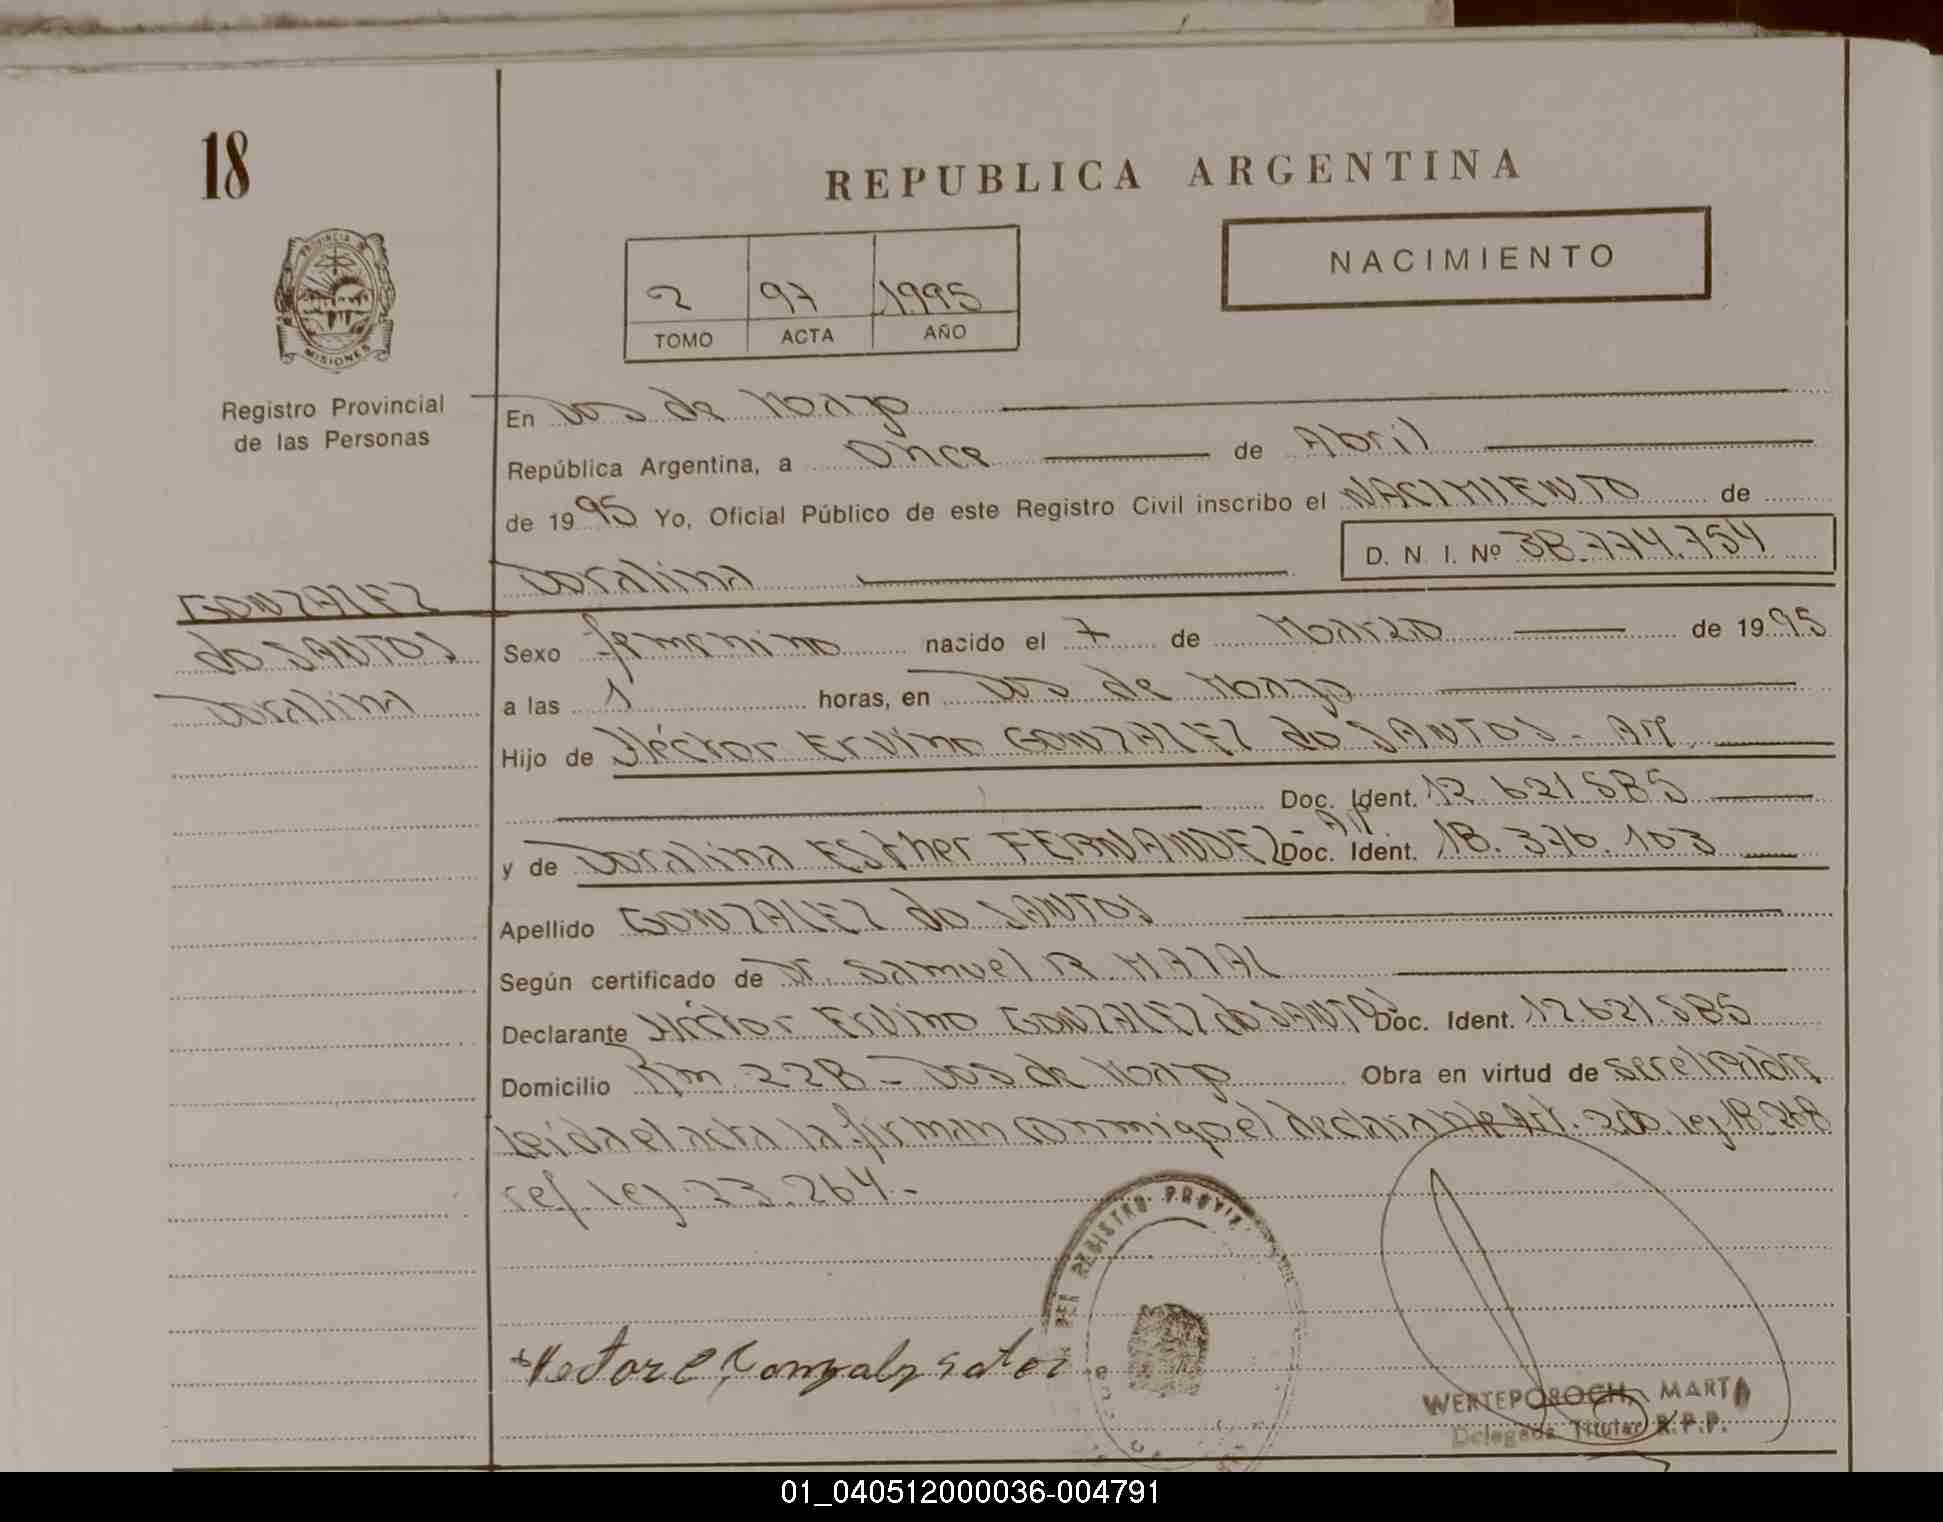 18
REPUBLICA ARGENTINA
PROVINCIA DE
MISIONES
Registro Provincial
de las Personas
NACIMIENTO
2 97 1995
TOMO ACTA AÑO
En Dos de Marzo
República Argentina, a Once de Abril
de 1995 Yo, Oficial Público de este Registro Civil inscribo el NACIMIENTO de
Doralina D. N. I. Nº 38.774.754
GONZALEZ
do SANTOS
Doralina
Sexo femenino nacido el 7 de Marzo de 1995
a las 1 horas, en Dos de Marzo
Hijo de Héctor Ervino GONZALEZ do SANTOS - Arg.
Doc. Ident. 12 621 585
y de Doralina Esther FERNANDEZ - Arg. Doc. Ident. 18.376.103
Apellido GONZALEZ do SANTOS
Según certificado de Dr. Samuel R
Declarante Héctor Ervino GONZALEZ do SANTOS Doc. Ident. 12 621.585
Domicilio Km 228 - Dos de Marzo Obra en virtud de ser el Padre
Leida el acta la firman conmigo el declarante Art. 2do. Ley 18.248
ref. Ley 23.264.-
REGISTRO PROVIN
Hector E Gonzalez
WERTEPOROCH, MARTA
Delegada Titular R.P.P.
01_040512000036-004791